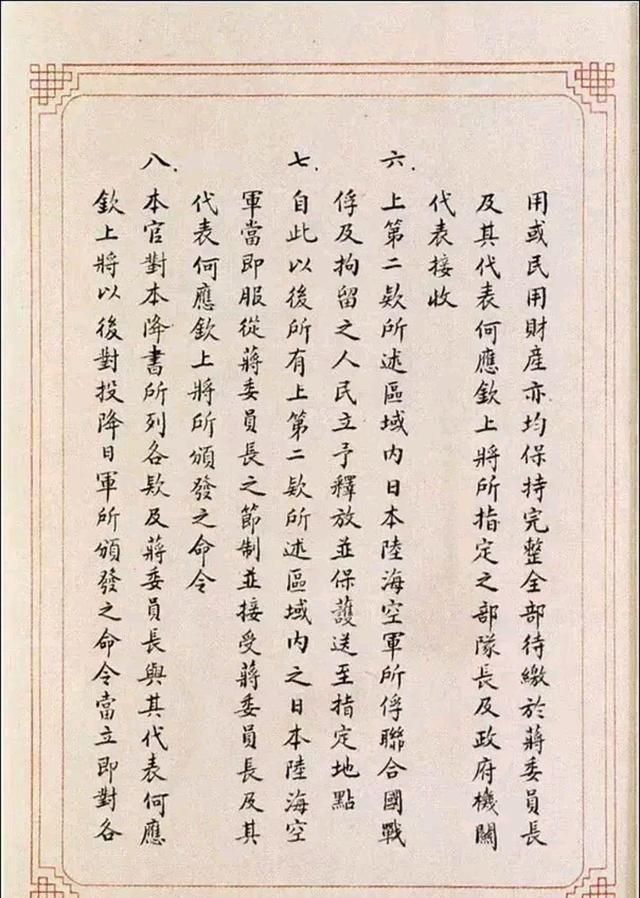 用或民用財產亦均保持完整全部待繳於蔣委員長
及其代表何應欽上將所指定之部隊長及政府機關
代表接收
六.上第二款所述區域內日本陸海空軍所俘聯合國戰
俘及拘留之人民立予釋放並保護送至指定地點
七.自此以後所有上第二款所述區域內之日本陸海空
軍當即服從蔣委員長之節制並接受蔣委員長及其
代表何應欽上將所頒發之命令
八.本官對本降書所列各款及蔣委員長與其代表何應
欽上將以後對投降日軍所頒發之命令當立即對各